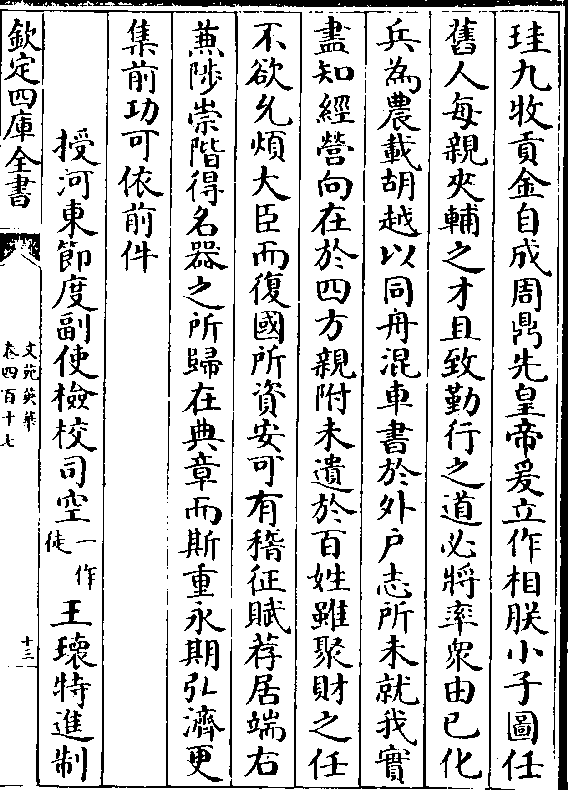 珪九牧貢金自成周鼎先皇帝爰立作相朕小子圖任
舊人每親夾輔之才且致勤行之道必將率衆由已化
兵為農載胡越以同舟混車書於外户志所未就我實
盡知經營向在於四方親附未遺於百姓雖聚財之任
不欲允煩大臣而復國所資安可有稽征賦荐居端右
兼陟崇階得名器之所歸在典章而斯重永期弘濟更
集前功可依前件
授河東節度副使檢校司空一作徒王瓌特進制
欽定四庫全書
文苑英華
卷四百十七
十三